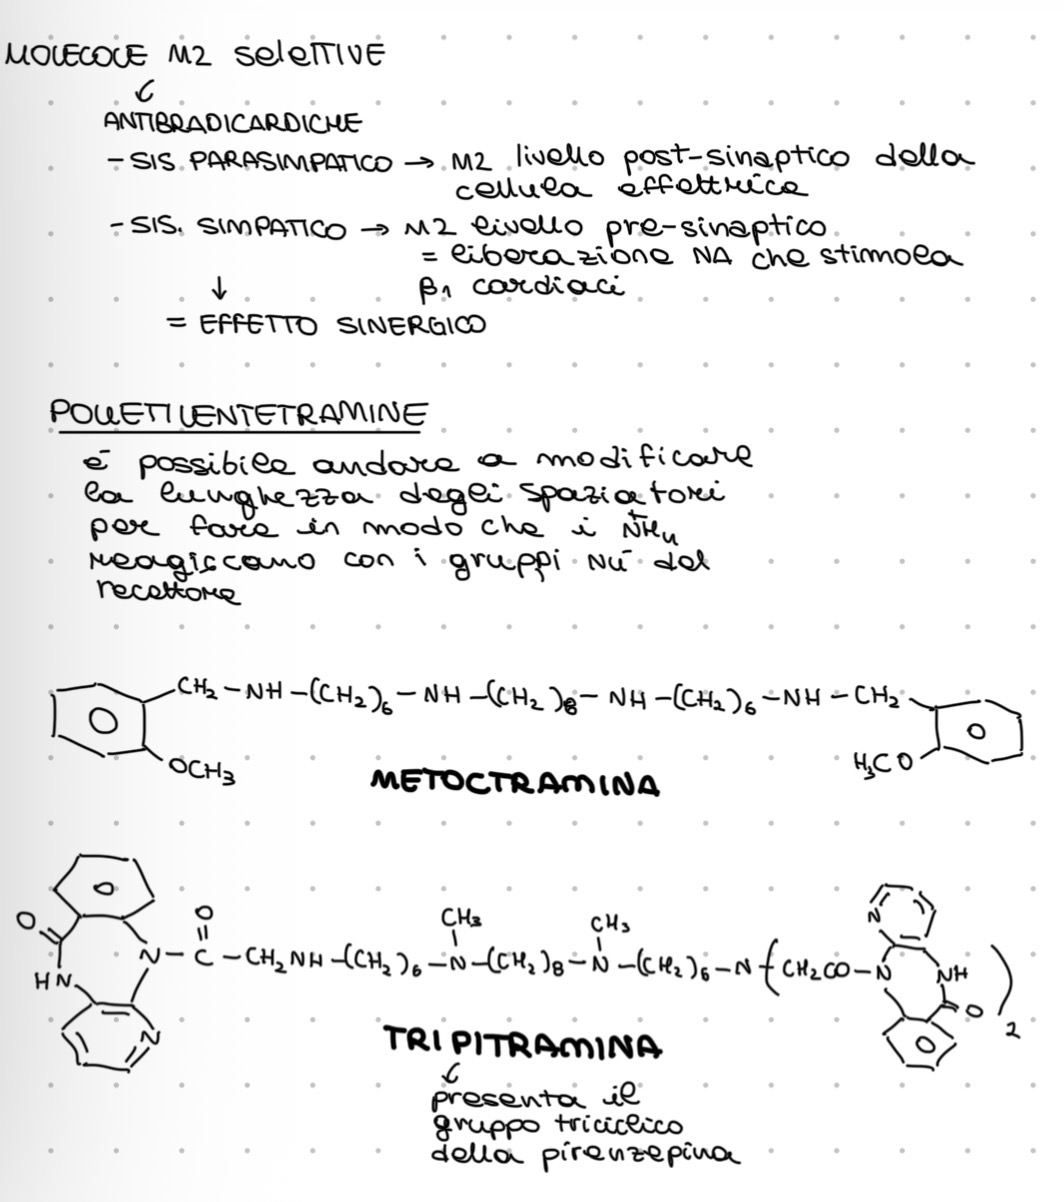 MOLECOLE M2 SELETTIVE
ANTIBRADICARDICHE
- SIS. PARASIMPATICO → M2 livello post-sinaptico della
cellula effettrice
- SIS. SIMPATICO → M2 livello pre-sinaptico
= liberazione NA che stimola
↓ β1 cardiaci
= EFFETTO SINERGICO
POLIETILENTETRAMINE
è possibile andare a modificare
la lunghezza degli spaziatori
per fare in modo che i N⁺H4
reagiscano con i gruppi Nu⁻ del
recettore
CH2 - NH - (CH2)6 - NH - (CH2)8 - NH - (CH2)6 - NH - CH2
OCH3 H3CO
METOCTRAMINA
O O CH3 CH3 N
N - C - CH2NH - (CH2)6 - N - (CH2)8 - N - (CH2)6 - N - (CH2CO - N NH)2
HN N O
TRIPITRAMINA
presenta il
gruppo triciclico
della pirenzepina